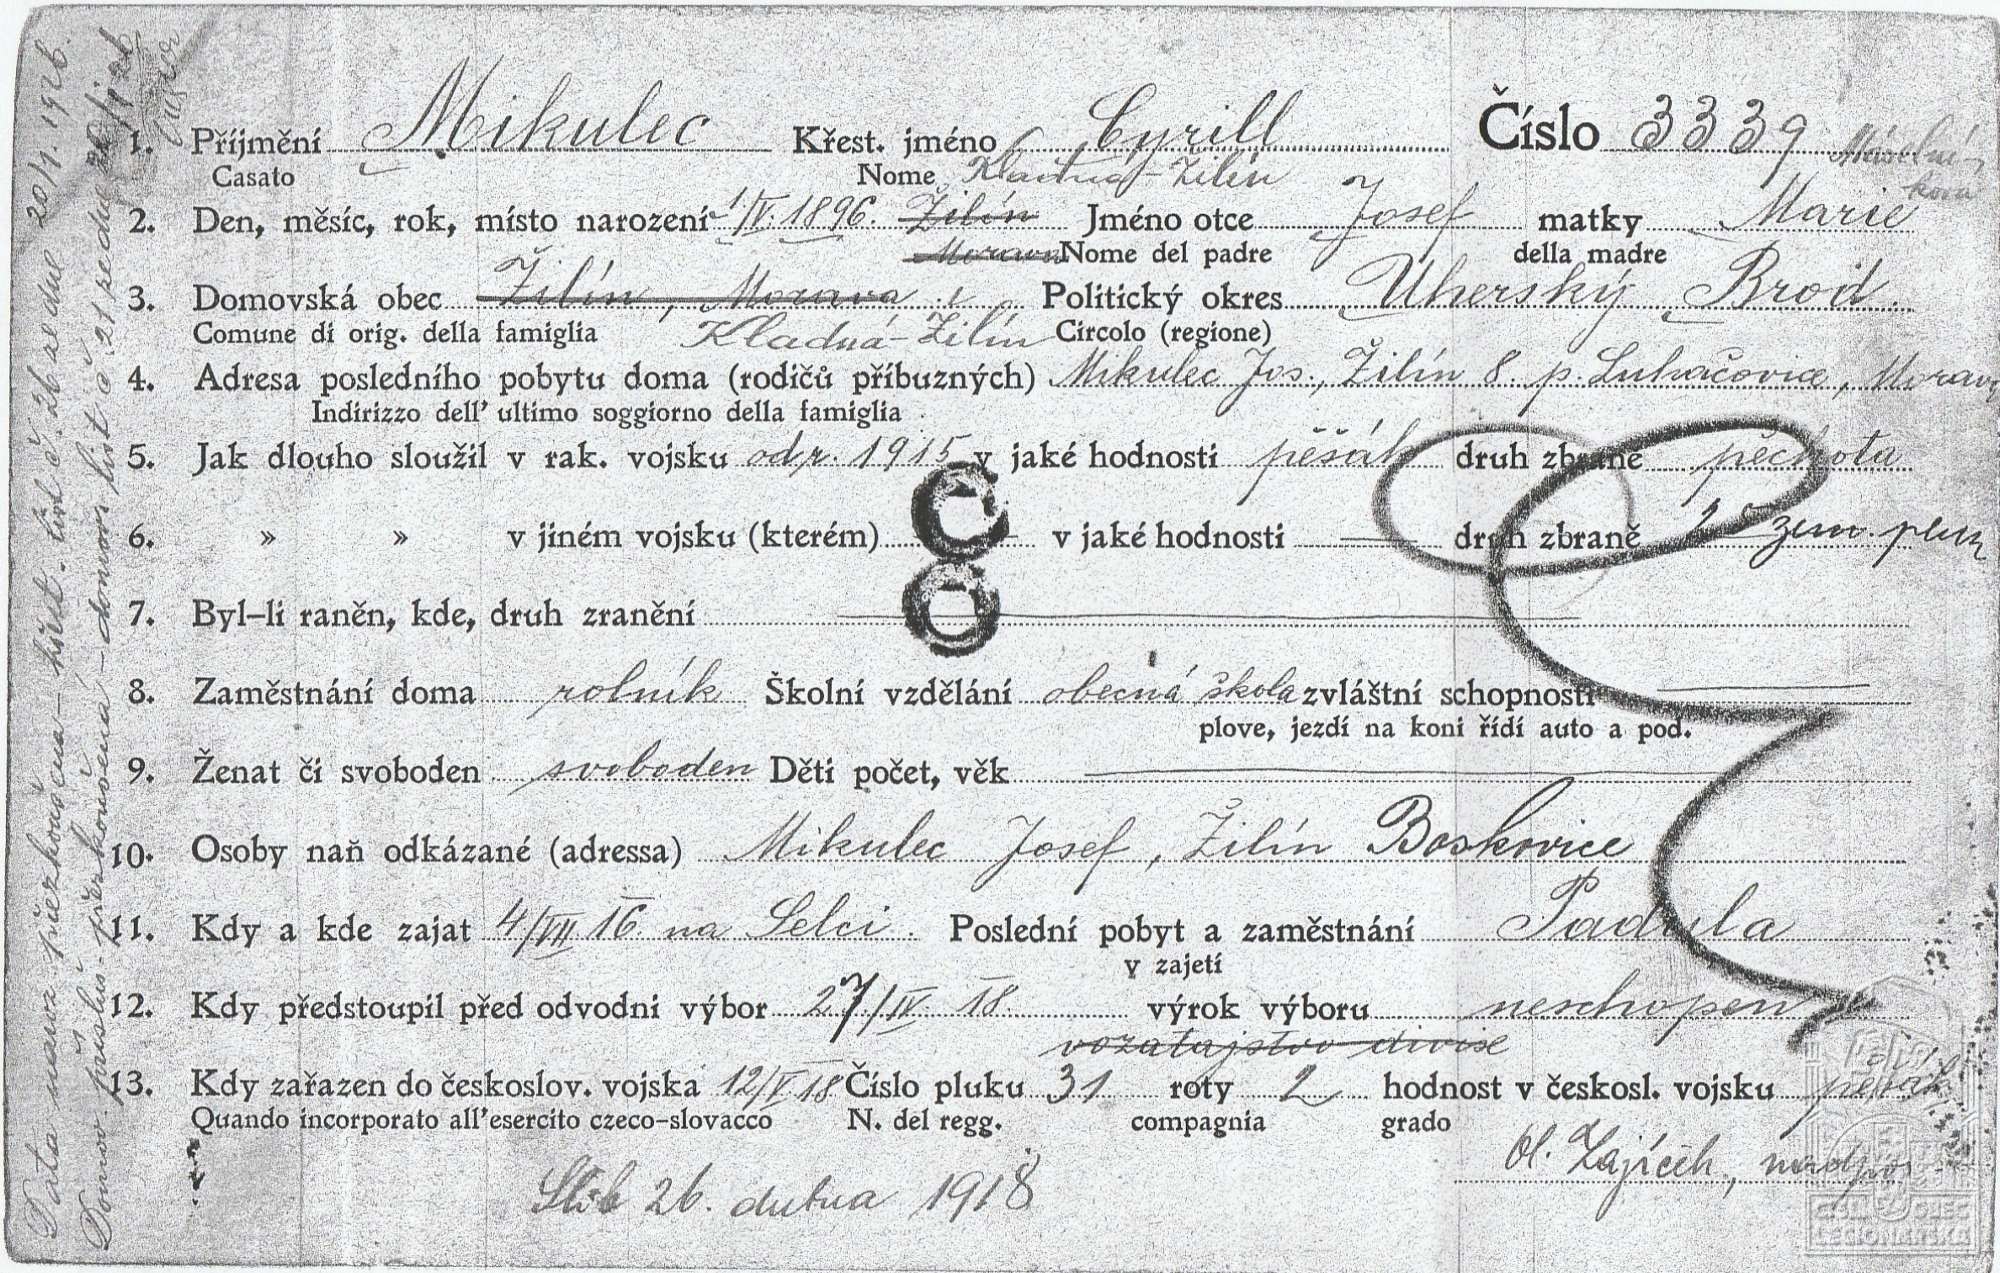 1. Příjmění Mikulec Křest. jméno Cyrill Číslo 3339
Casato Nome Kladná-Žilín
2. Den, měsíc, rok, místo narození 1/IV. 1896. Žilín Jméno otce Josef matky Marie
Morava Nome del padre della madre
3. Domovská obec Žilín, Morava Politický okres Uherský Brod.
Comune di orig. della famiglia Kladná-Žilín Circolo (regione)
4. Adresa posledního pobytu doma (rodičů příbuzných) Mikulec Jos., Žilín 8 p. Luhačovice, Morava
Indirizzo dell' ultimo soggiorno della famiglia
5. Jak dlouho sloužil v rak. vojsku od r. 1915 v jaké hodnosti pěšák druh zbraně pěchota
6. » » v jiném vojsku (kterém) v jaké hodnosti — druh zbraně zem. pluk
7. Byl-li raněn, kde, druh zranění
8. Zaměstnání doma rolník Školní vzdělání obecná škola zvláštní schopnosti
plove, jezdí na koni řídí auto a pod.
9. Ženat či svoboden svoboden Děti počet, věk
10. Osoby naň odkázané (adressa) Mikulec Josef, Žilín Boskovice
11. Kdy a kde zajat 4/VII 16 na Selci. Poslední pobyt a zaměstnání Padula
v zajetí
12. Kdy předstoupil před odvodní výbor 27/IV 18. výrok výboru neschopen
vozatajstvo divise
13. Kdy zařazen do českoslov. vojska 12/V 18 Číslo pluku 31 roty 2 hodnost v českosl. vojsku pěšák
Quando incorporato all'esercito czeco-slovacco N. del regg. compagnia grado
Ol. Zajíček, nadpor
Slib 26. dubna 1918
ČSLA OBEC
LEGIONÁŘSKÁ